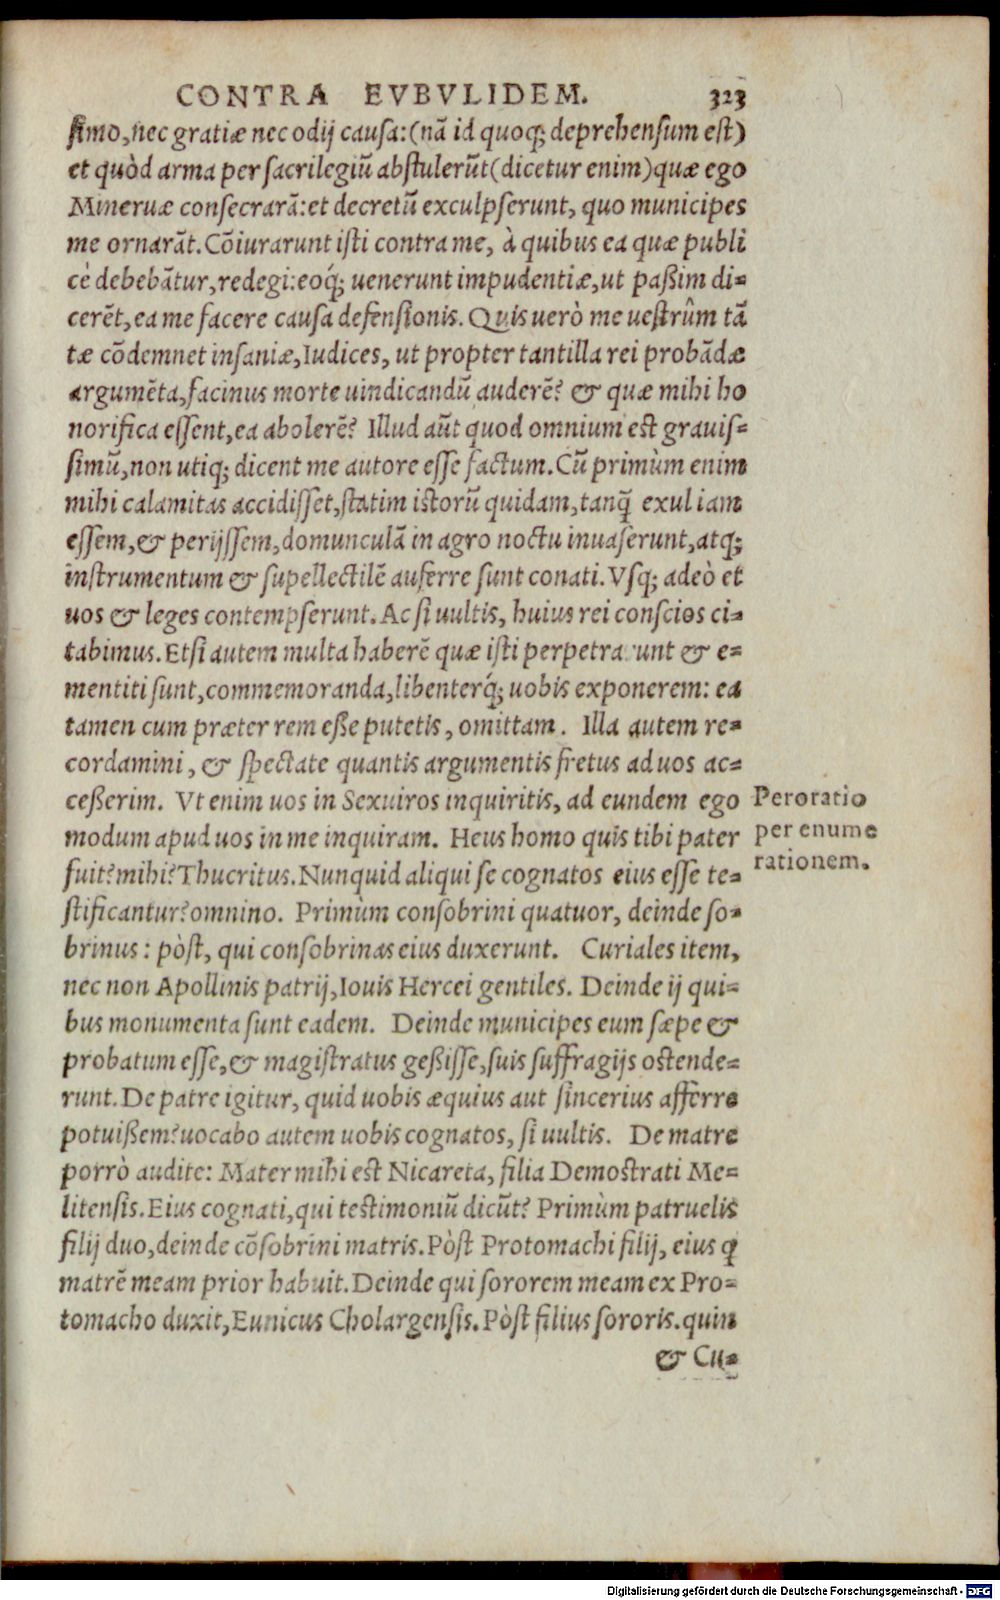 CONTRA EVBVLIDEM. 323
simo, nec gratiæ nec odij causa:(nã id quoq; deprehensum est)
et quòd arma per sacrilegiũ abstulerũt(dicetur enim)quæ ego
Mineruæ consecrarã: et decretũ exculpserunt, quo municipes
me ornarãt. Cõiurarunt isti contra me, à quibus ea quæ publi
cè debebãtur, redegi: eoq́; uenerunt impudentiæ, ut paßim di-
cerẽt, ea me facere causa defensionis. Quis uerò me uestrûm tã
tæ cõdemnet insaniæ, Iudices, ut propter tantilla rei probãdæ
argumẽta, facinus morte uindicandũ auderẽ? & quæ mihi ho
norifica essent, ea abolerẽ? Illud aũt quod omnium est grauis-
simũ, non utiq; dicent me autore esse factum. Cũ primùm enim
mihi calamitas accidisset, statim istorũ quidam, tanq̃ exul iam
essem, & perijssem, domunculã in agro noctu inuaserunt, atq;
instrumentum & supellectilẽ auferre sunt conati. Vsq; adeò et
uos & leges contempserunt. Ac si uultis, huius rei conscios ci-
tabimus. Etsi autem multa haberẽ quæ isti perpetrarunt & e-
mentiti sunt, commemoranda, libenterq́; uobis exponerem: ea
tamen cum præter rem eße putetis, omittam. Illa autem re-
cordamini, & spectate quantis argumentis fretus ad uos ac-
ceßerim. Vt enim uos in Sexuiros inquiritis, ad eundem ego
modum apud uos in me inquiram. Heus homo quis tibi pater
fuit? mihi? Thucritus. Nunquid aliqui se cognatos eius esse te-
stificantur? omnino. Primùm consobrini quatuor, deinde so-
brinus: pòst, qui consobrinas eius duxerunt. Curiales item,
nec non Apollinis patrij, Iouis Hercei gentiles. Deinde ij qui-
bus monumenta sunt eadem. Deinde municipes eum sæpe &
probatum esse, & magistratus geßisse, suis suffragijs ostende-
runt. De patre igitur, quid uobis æquius aut sincerius afferre
potuißem? uocabo autem uobis cognatos, si uultis. De matre
porrò audite: Mater mihi est Nicareta, filia Demostrati Me-
litensis. Eius cognati, qui testimoniũ dicũt? Primùm patruelis
filij duo, deinde cõsobrini matris. Pòst Protomachi filij, eius q̃
matrẽ meam prior habuit. Deinde qui sororem meam ex Pro-
tomacho duxit, Eunicus Cholargensis. Pòst filius sororis. quin
& Cu-
Peroratio
per enume
rationem.
Digitalisierung gefördert durch die Deutsche Forschungsgemeinschaft - DFG